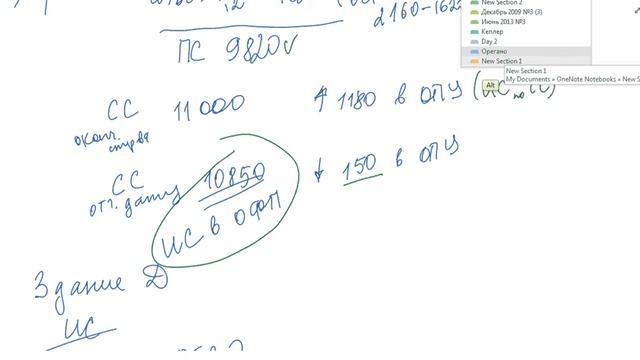 d160-162
New Section 2
Декабрь 2009 №3 (3)
Июнь 2013 №3
Кеплер
Day 2
Орегано
New Section 1
New Section 1
My Documents » OneNote Notebooks » New S
Alt
ПС 9820
СС 11 000 ↑ 1180 в ОПУ (ИС по СС)
СС 10850 ↓ 150 в ОПУ
отч. дату
ИС в ОФП
Здание Д
ИС